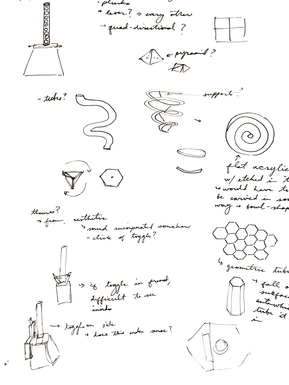 - plinko
• lever? → every other
• quad-directional?
← pyramid?
- tubes?
support?
flat acrylic
w/ etched in
• would have to
be carved in
way → bowl-shap
themes?
→ form, aesthetic
→ sound incorporated somehow
- click of toggle?
→ if toggle in front,
difficult to see
inside
→ toggle on side
• does this make sense?
↳ geometric tube